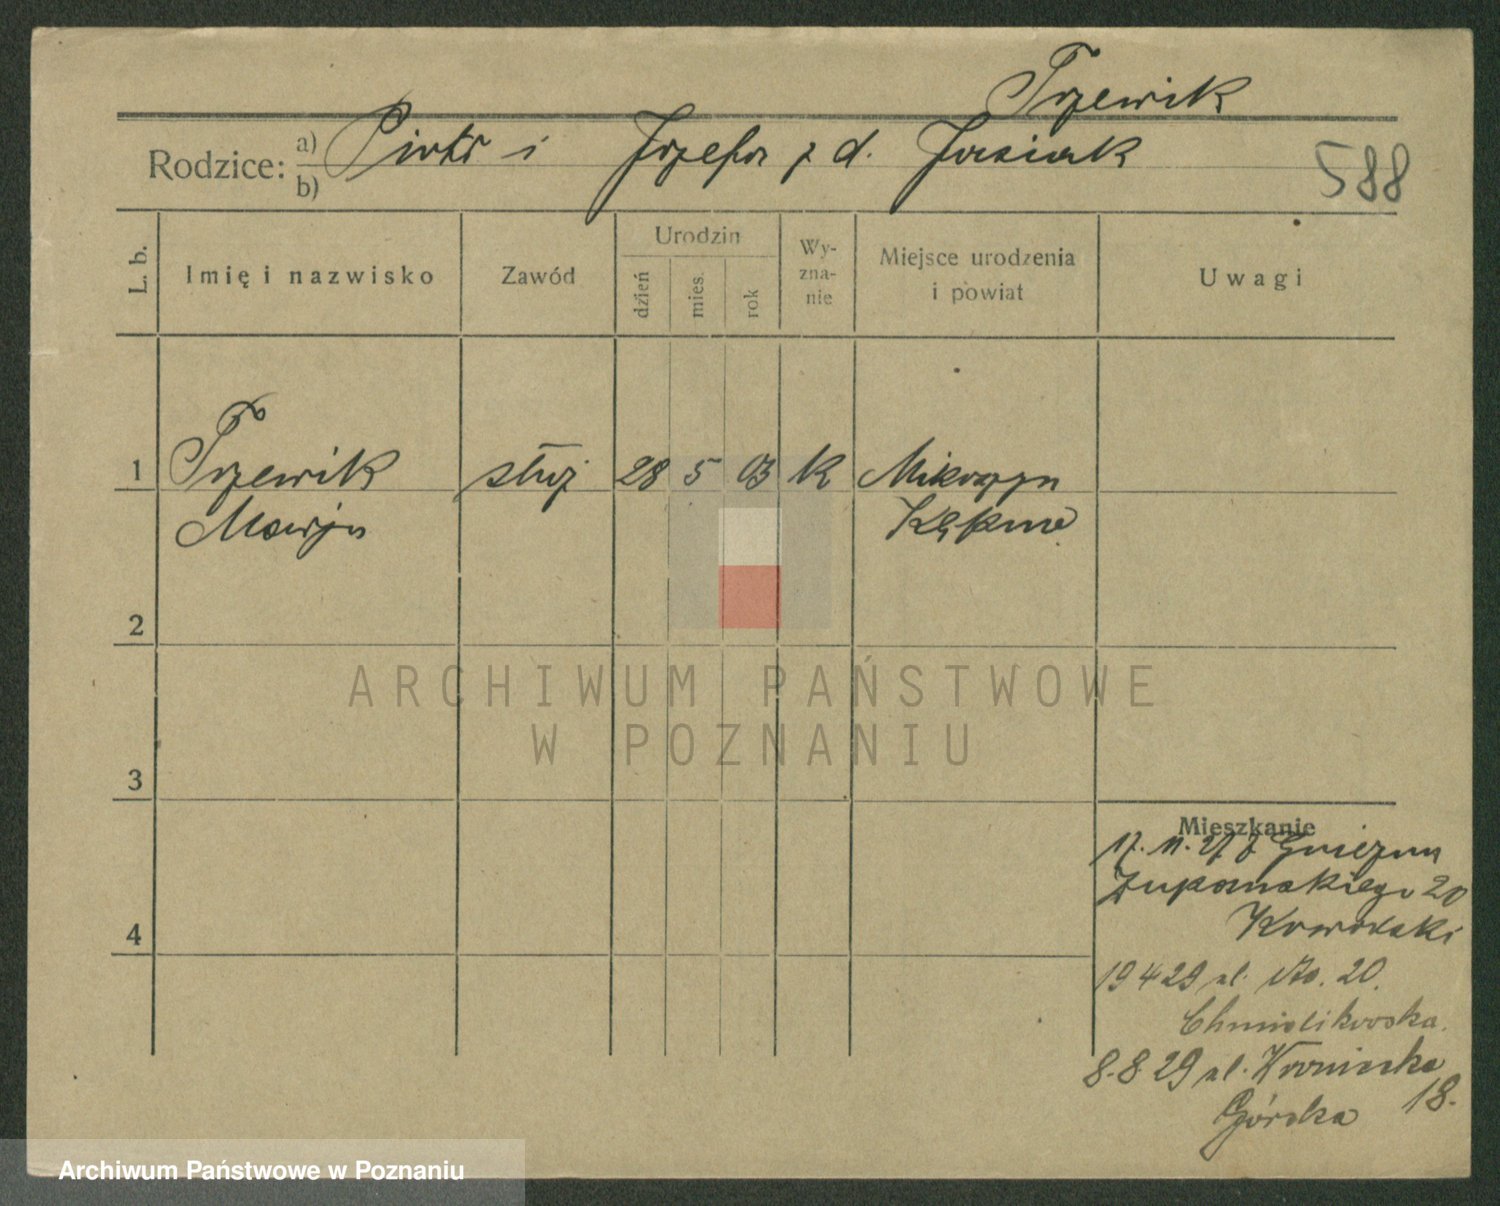 Trzewik
Rodzice: a) Piotr i Józefa z d. Jasiak
b)
588
L. b.
Imię i nazwisko
Zawód
Urodzin
dzień
mies.
rok
Wy-
zna-
nie
Miejsce urodzenia
i powiat
Uwagi
1 Trzewik służ 28 5 03 k Mikorzyn
Marja Kępno
2
3
4
ARCHIWUM PAŃSTWOWE
W POZNANIU
Mieszkanie
17. 11. 27 z Gniezna
Żupańskiego 20
Kowalski
19 4 29 ul. 20.
8.8.29 ul.
Górska 18.
Archiwum Państwowe w Poznaniu